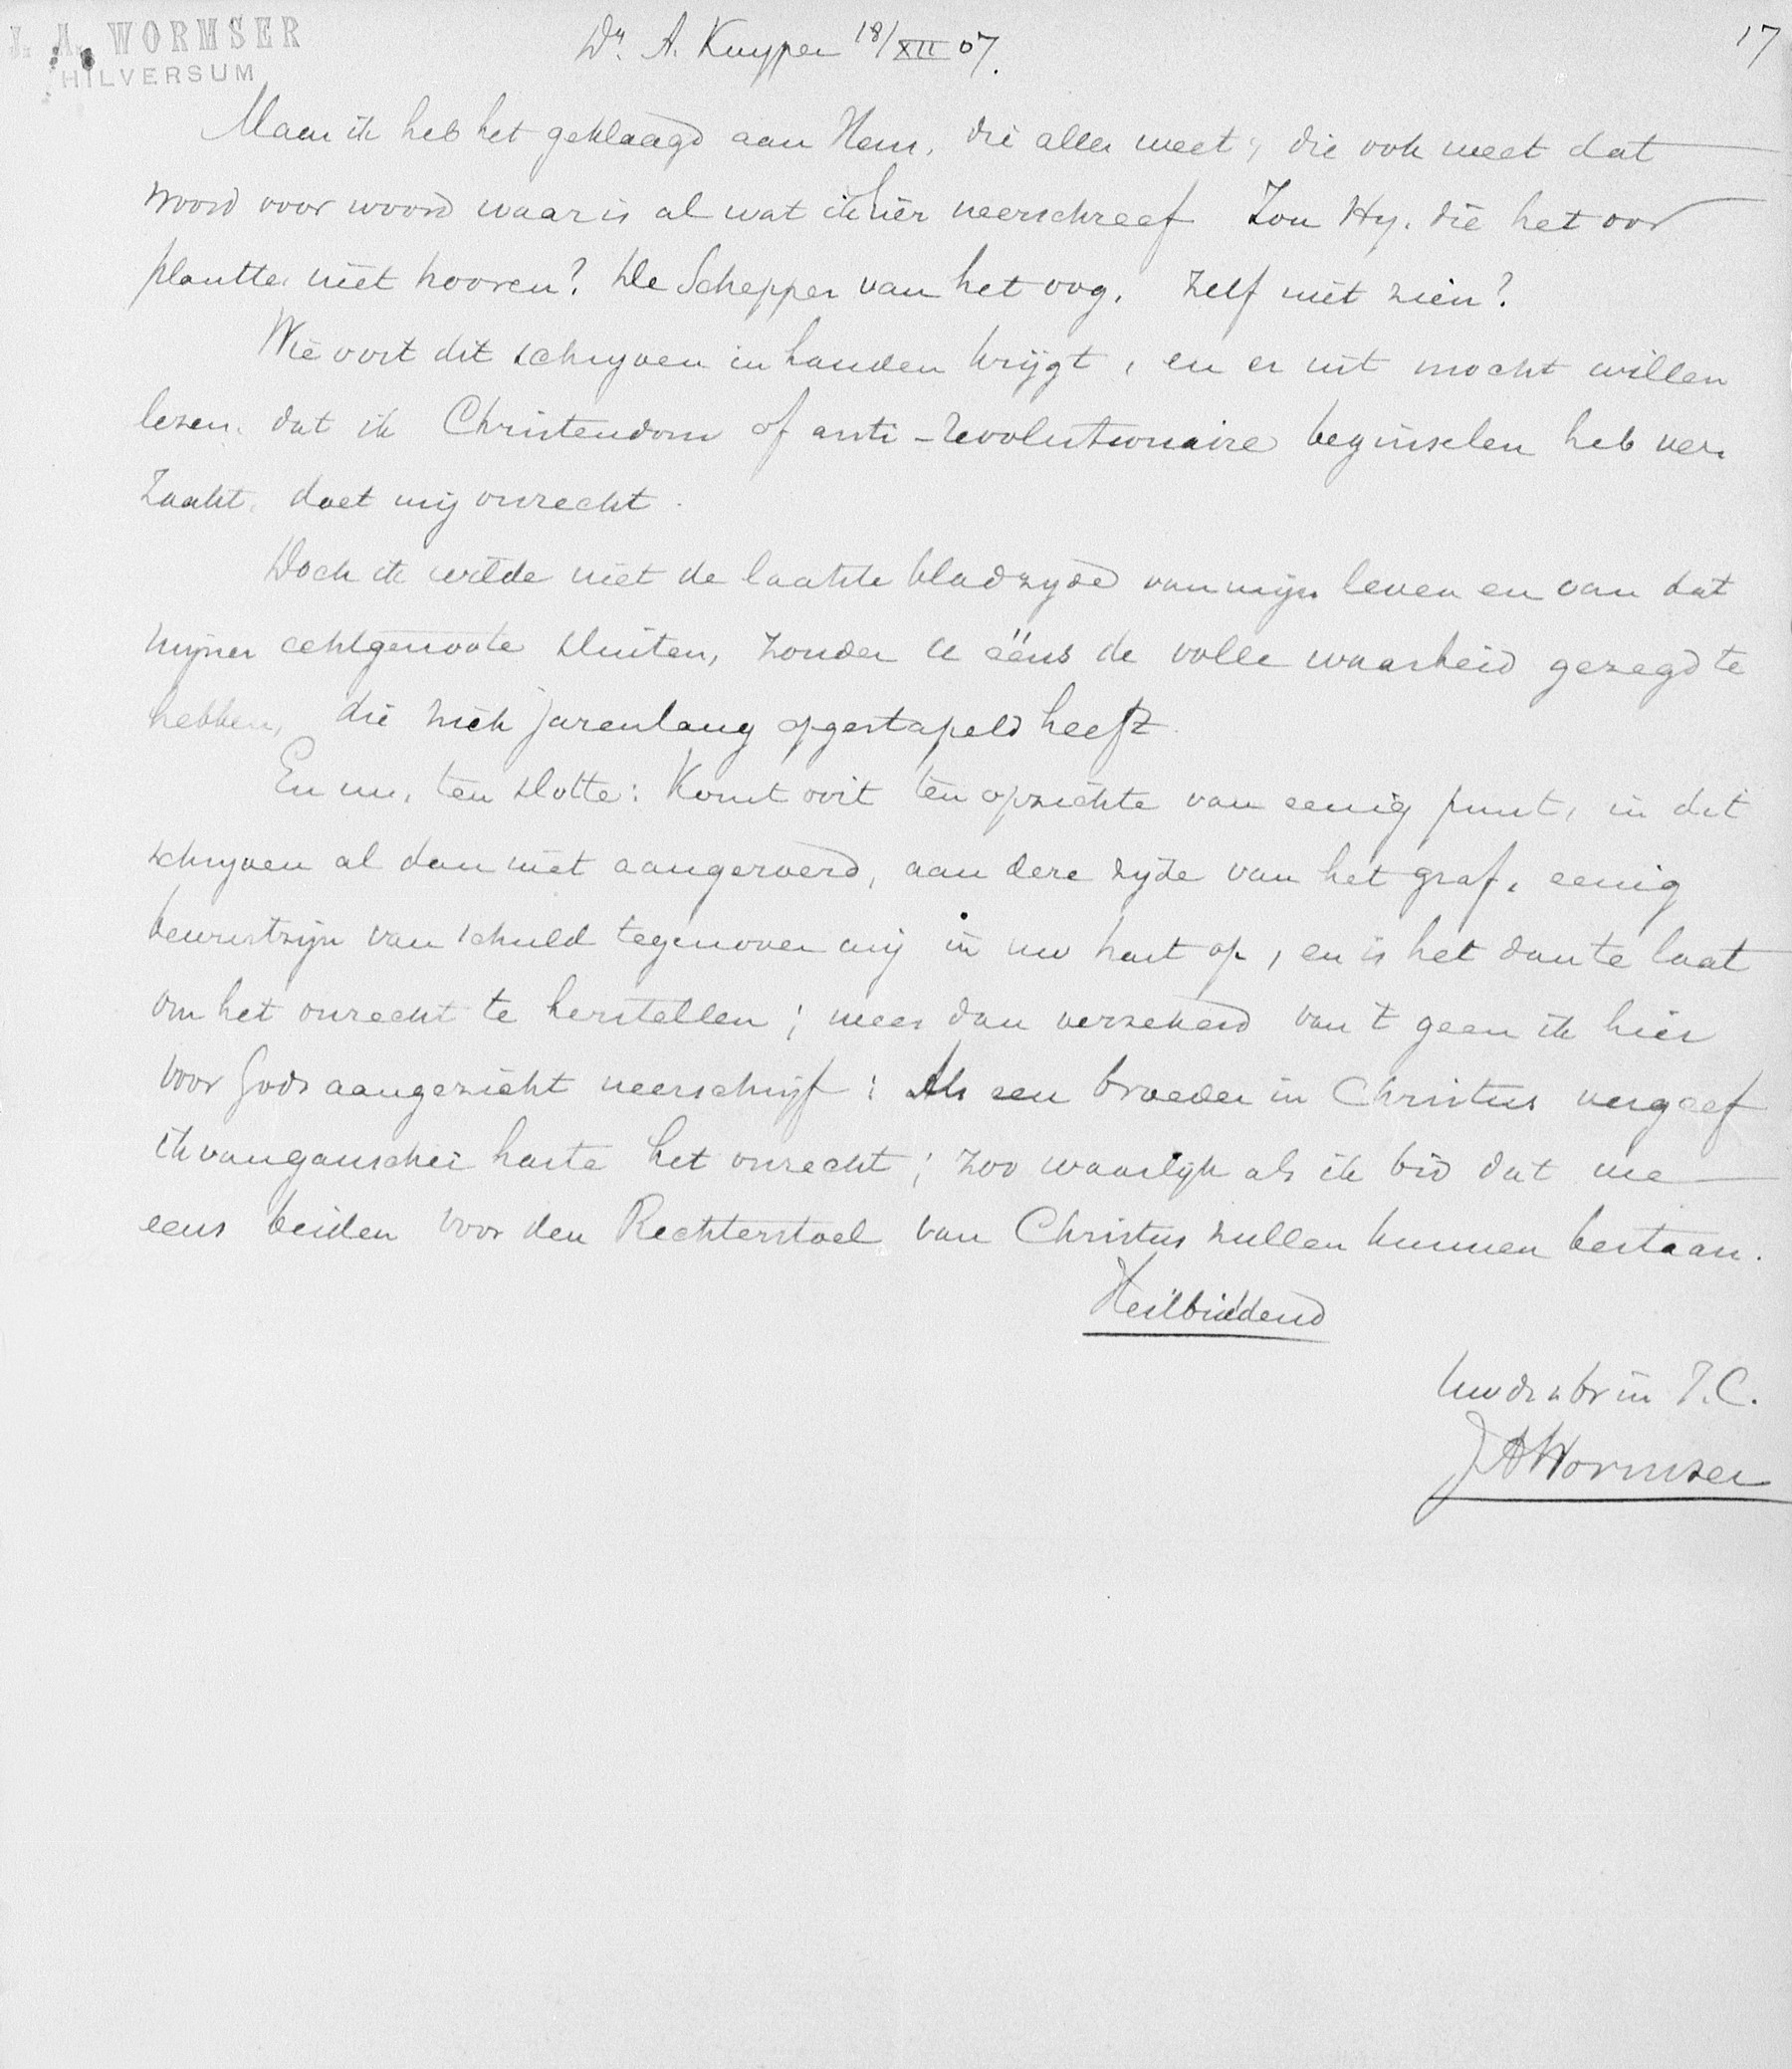 J. A. WORMSER
HILVERSUM
Dr. A. Kuyper 18/XII 07.
17
Maar ik heb het geklaagd aan Hem, die alles weet; die ook weet dat
woord voor woord waar is al wat ik hier neerschreef Zou Hy, die het oor
plantte, niet hooren? De Schepper van het oog, zelf niet zien?
Wie ooit dit schryven in handen krijgt, en er uit mocht willen
lezen, dat ik Christendom of anti-revolutionaire beginselen heb ver-
zaakt, doet mij onrecht.
Doch ik wilde niet de laatste bladzyde van mijn leven en van dat
mijner echtgenoote sluiten, zonder U ééns de volle waarheid gezegd te
hebben, die zich jarenlang opgestapeld heeft.
En nu, ten slotte: Komt ooit ten opzichte van eenig punt, in dit
schryven al dan niet aangeroerd, aan deze zyde van het graf, eenig
bewustzijn van schuld tegenover mij in uw hart op, en is het dan te laat
om het onrecht te herstellen; wees dan verzekerd van 't geen ik hier
voor Gods aangezicht neerschrijf: Als een broeder in Christus vergeef
ik van ganscher harte het onrecht; zoo waarlijk als ik bid dat we
eens beiden voor den Rechterstoel van Christus zullen kunnen bestaan.
Heilbiddend
Uw dr & br in J.C.
JAWormser